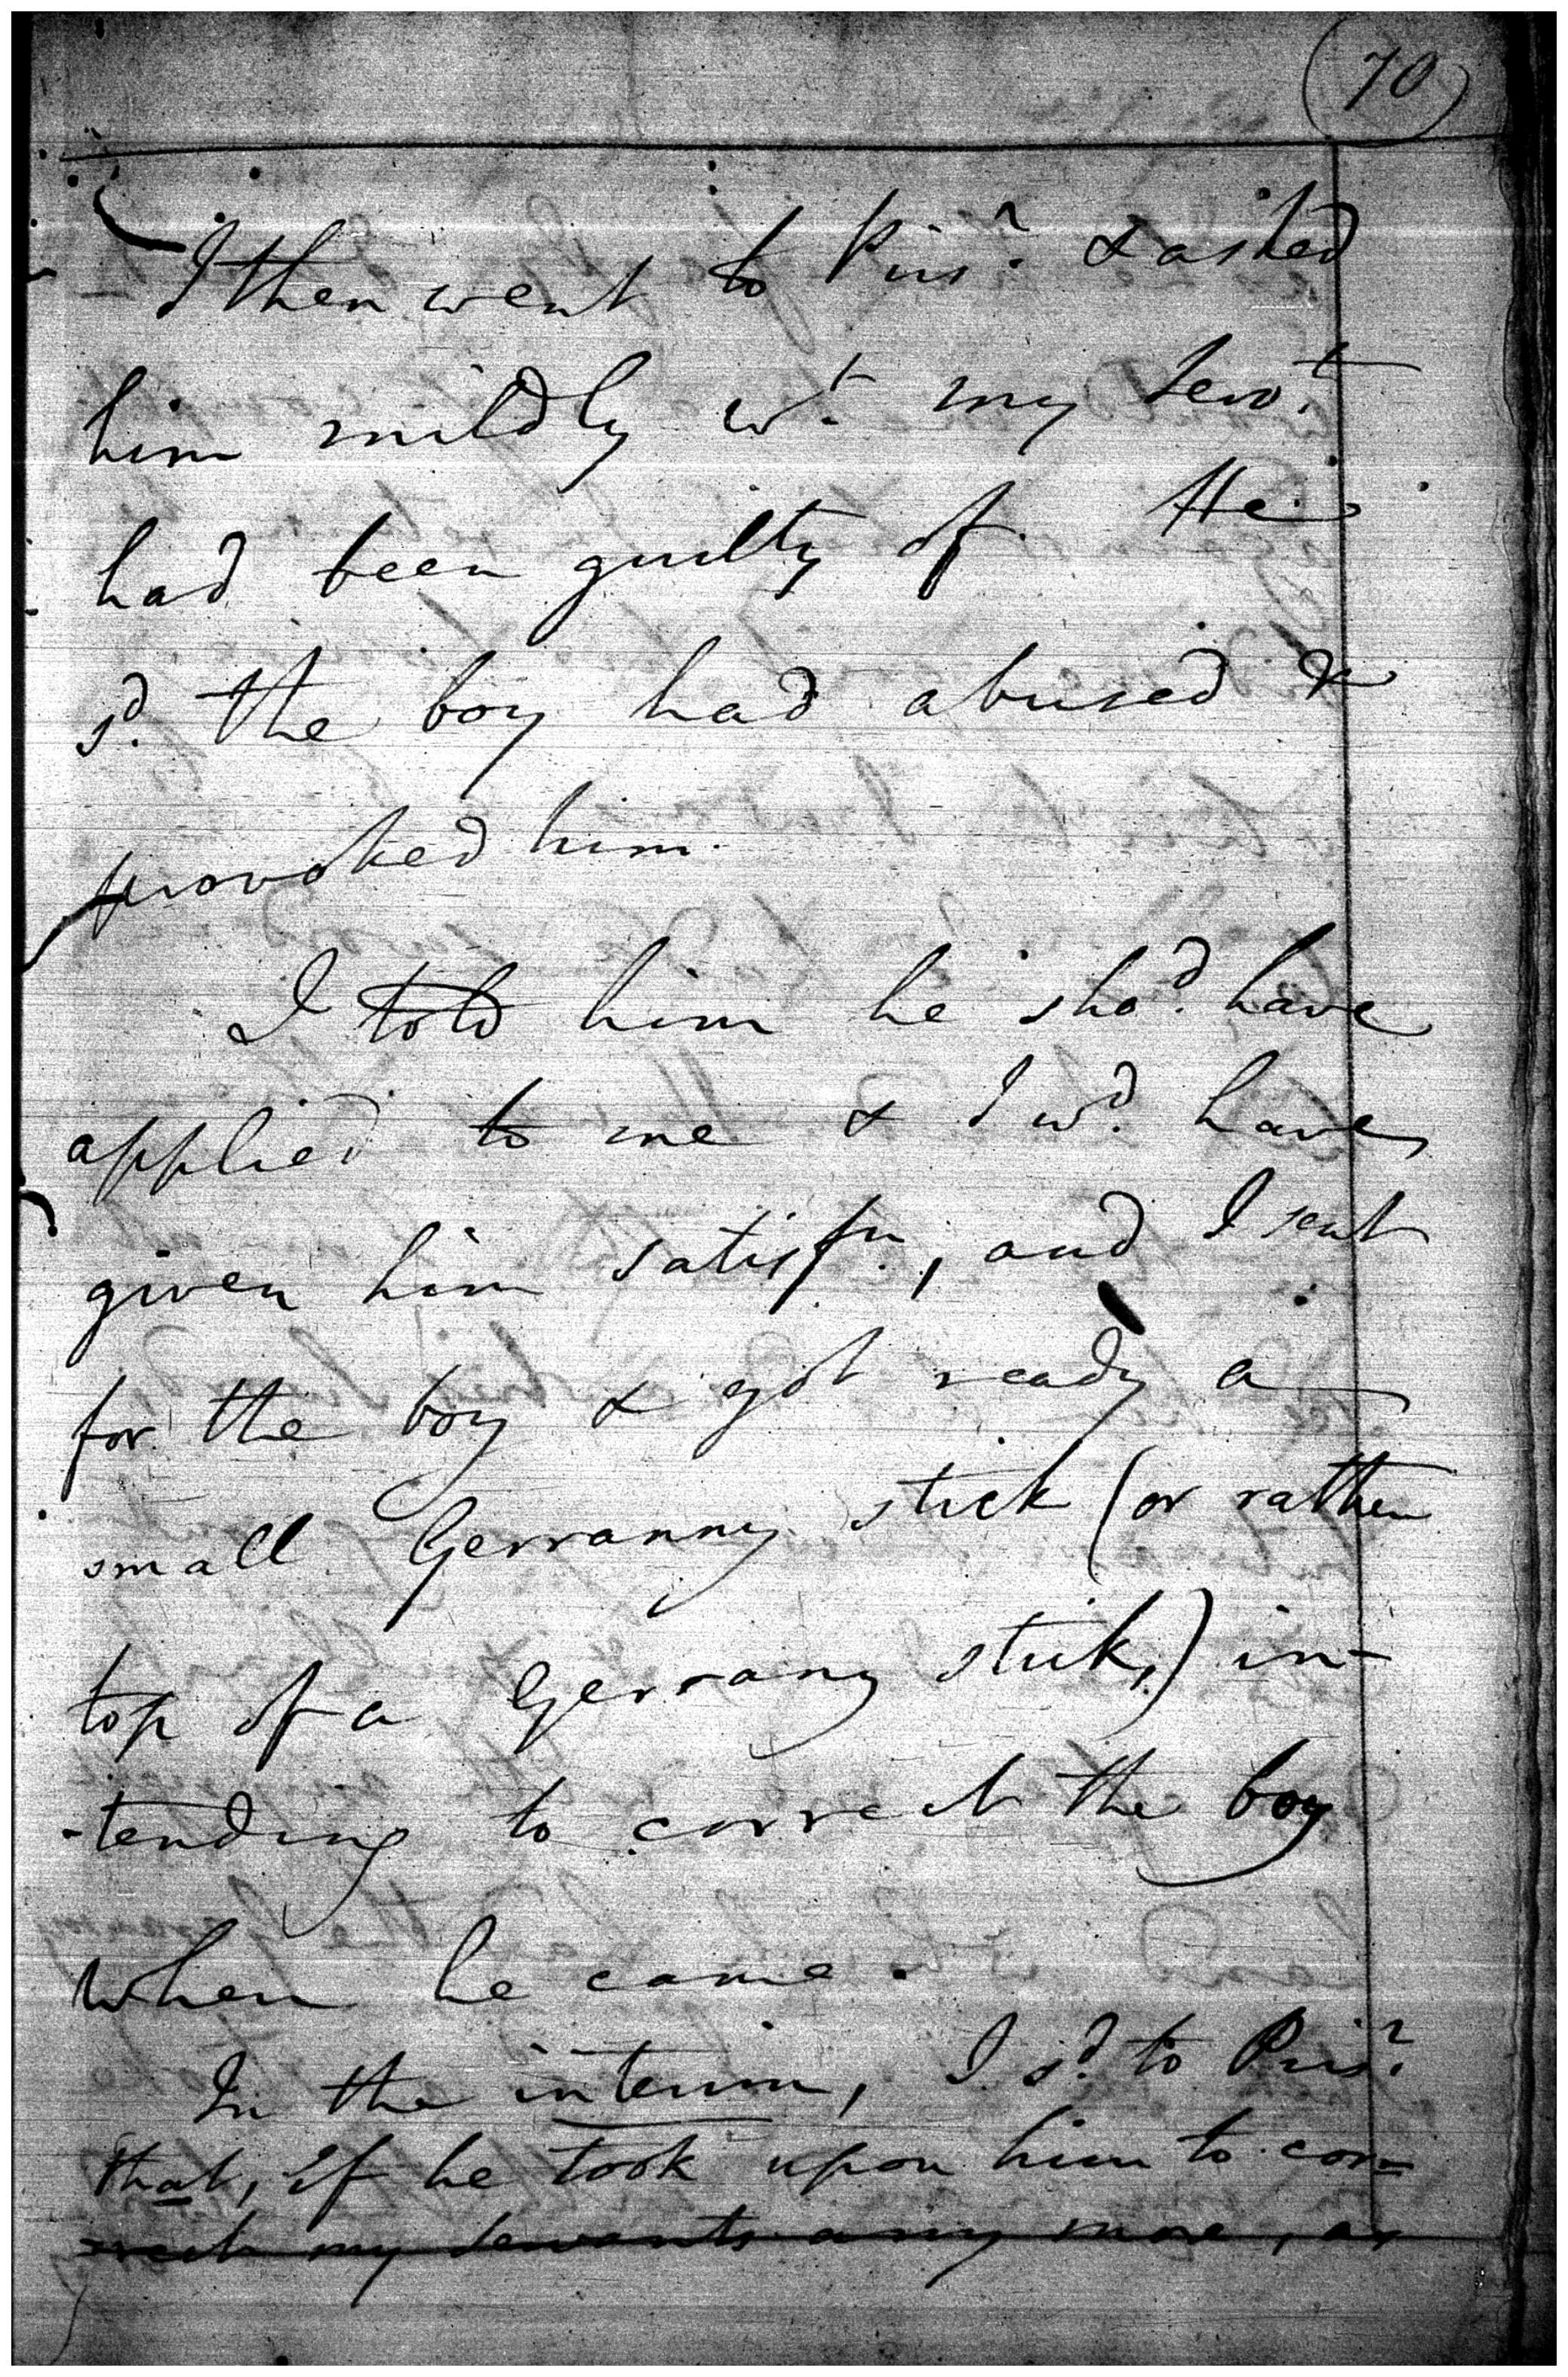 70
I then went to Prisr. & asked
him mildly wt. my Servt.
had been guilty of. He
sd. the boy had abused &
provoked him.
I told him he shod. have
applied to me & I wd. have
given him satisfn., and I sent
for the boy & got ready a
small Gerranny stick (or rather
top of a Gerrany stick,) in-
-tending to correct the boy
when he came.
In the interim, I sd. to Prisr.
that, if he took upon him to cor=
=rect my servants any more, as